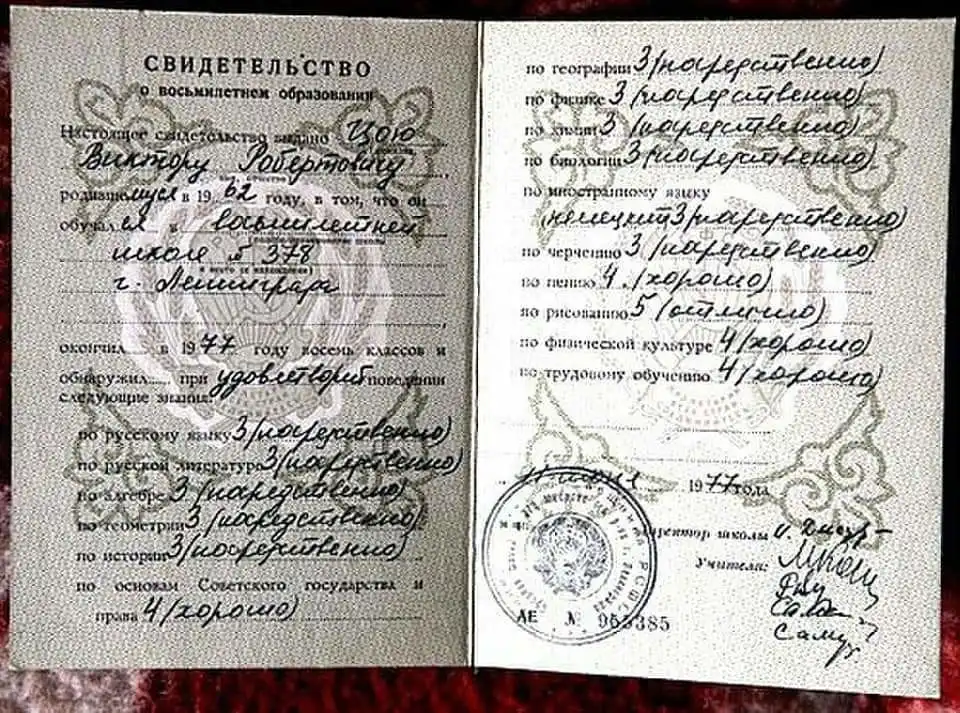 СВИДЕТЕЛЬСТВО
о восьмилетнем образовании
Настоящее свидетельство выдано Цою
Виктору Робертовичу
родившемуся в 1962 году, в том, что он
обучался в восьмилетней
школе № 378
и место ее нахождения)
г. Ленинграда
окончил в 1977 году восемь классов и
обнаружил при удовлетворит поведении
следующие знания:
по русскому языку 3 (посредственно)
по русской литературе 3 (посредственно)
по алгебре 3 (посредственно)
по геометрии 3 (посредственно)
по истории 3 (посредственно)
по основам Советского государства и
права 4 (хорошо)
по географии 3 (посредственно)
по физике 3 (посредственно)
по химии 3 (посредственно)
по биологии 3 (посредственно)
по иностранному языку
немецкий 3 (посредственно)
по черчению 3 (посредственно)
по пению 4. (хорошо)
по рисованию 5 (отлично)
по физической культуре 4 (хорошо)
по трудовому обучению 4 (хорошо)
1977 года
Директор школы
Учителя:
АЕ № 955385